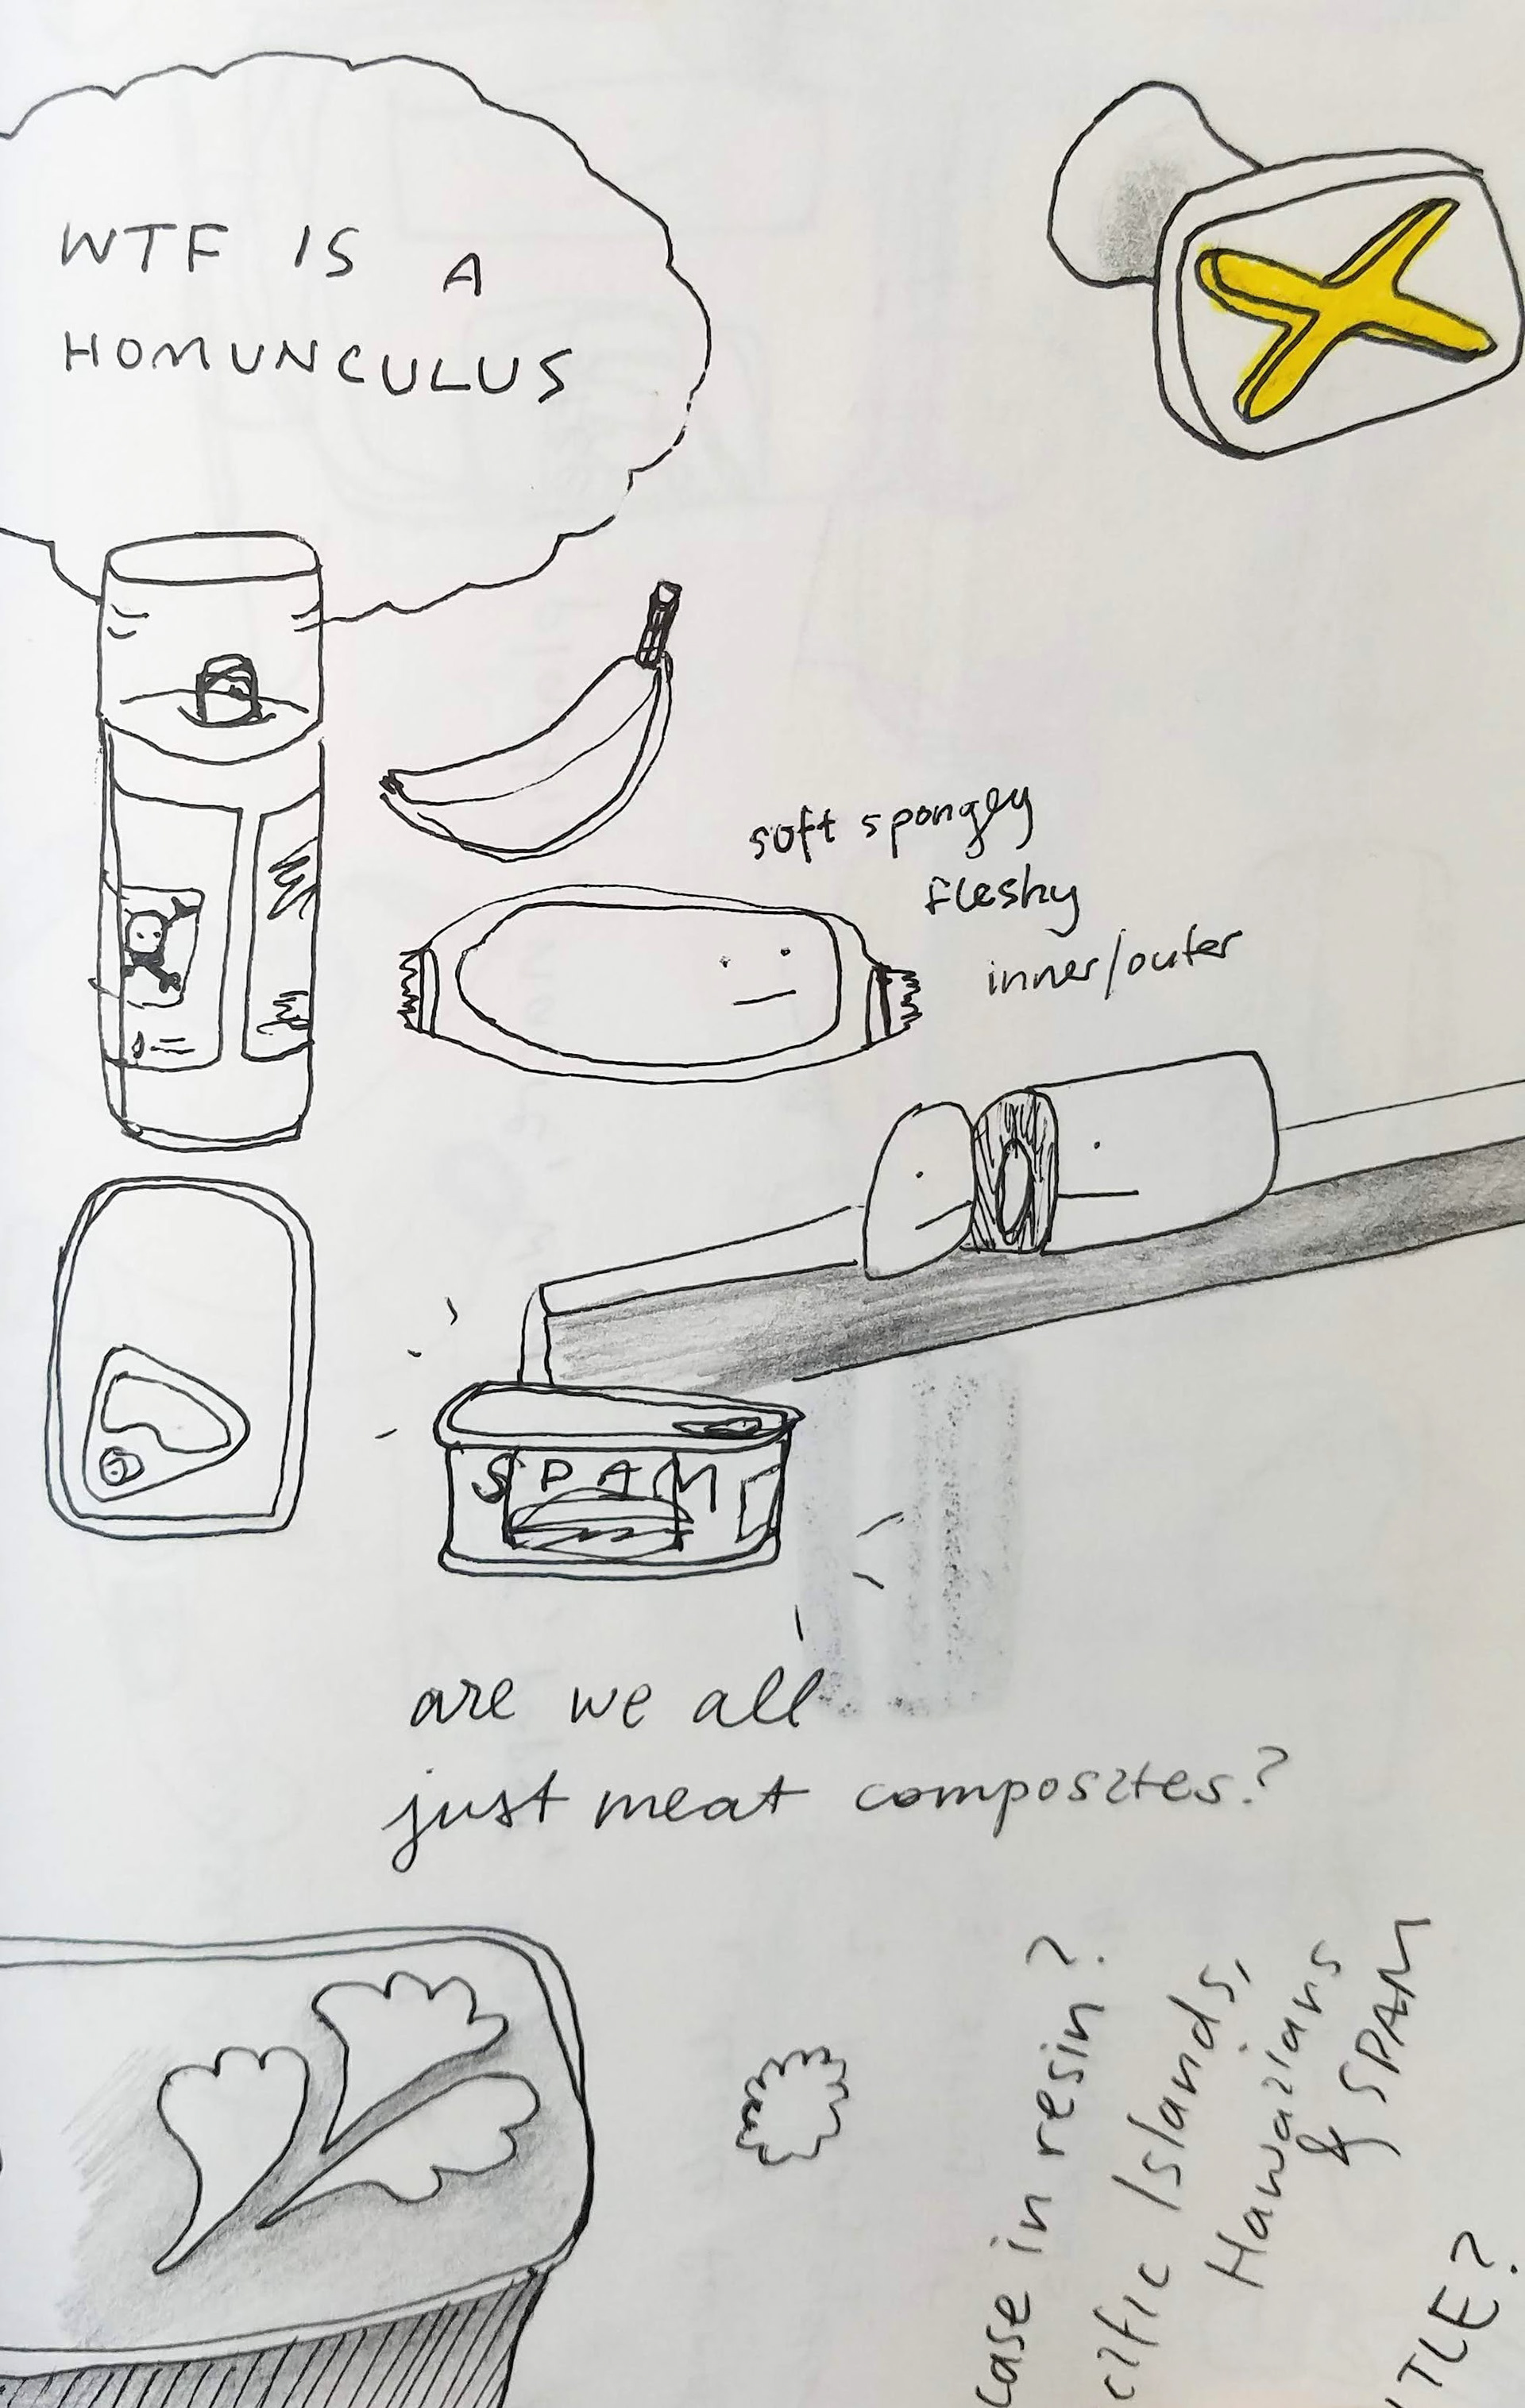 WTF IS A
HOMUNCULUS
soft spongey
fleshy
inner/outer
SPAM
are we all
just meat composites?
case in resin?
cific Islands,
Hawaiians
& SPAM
TLE?